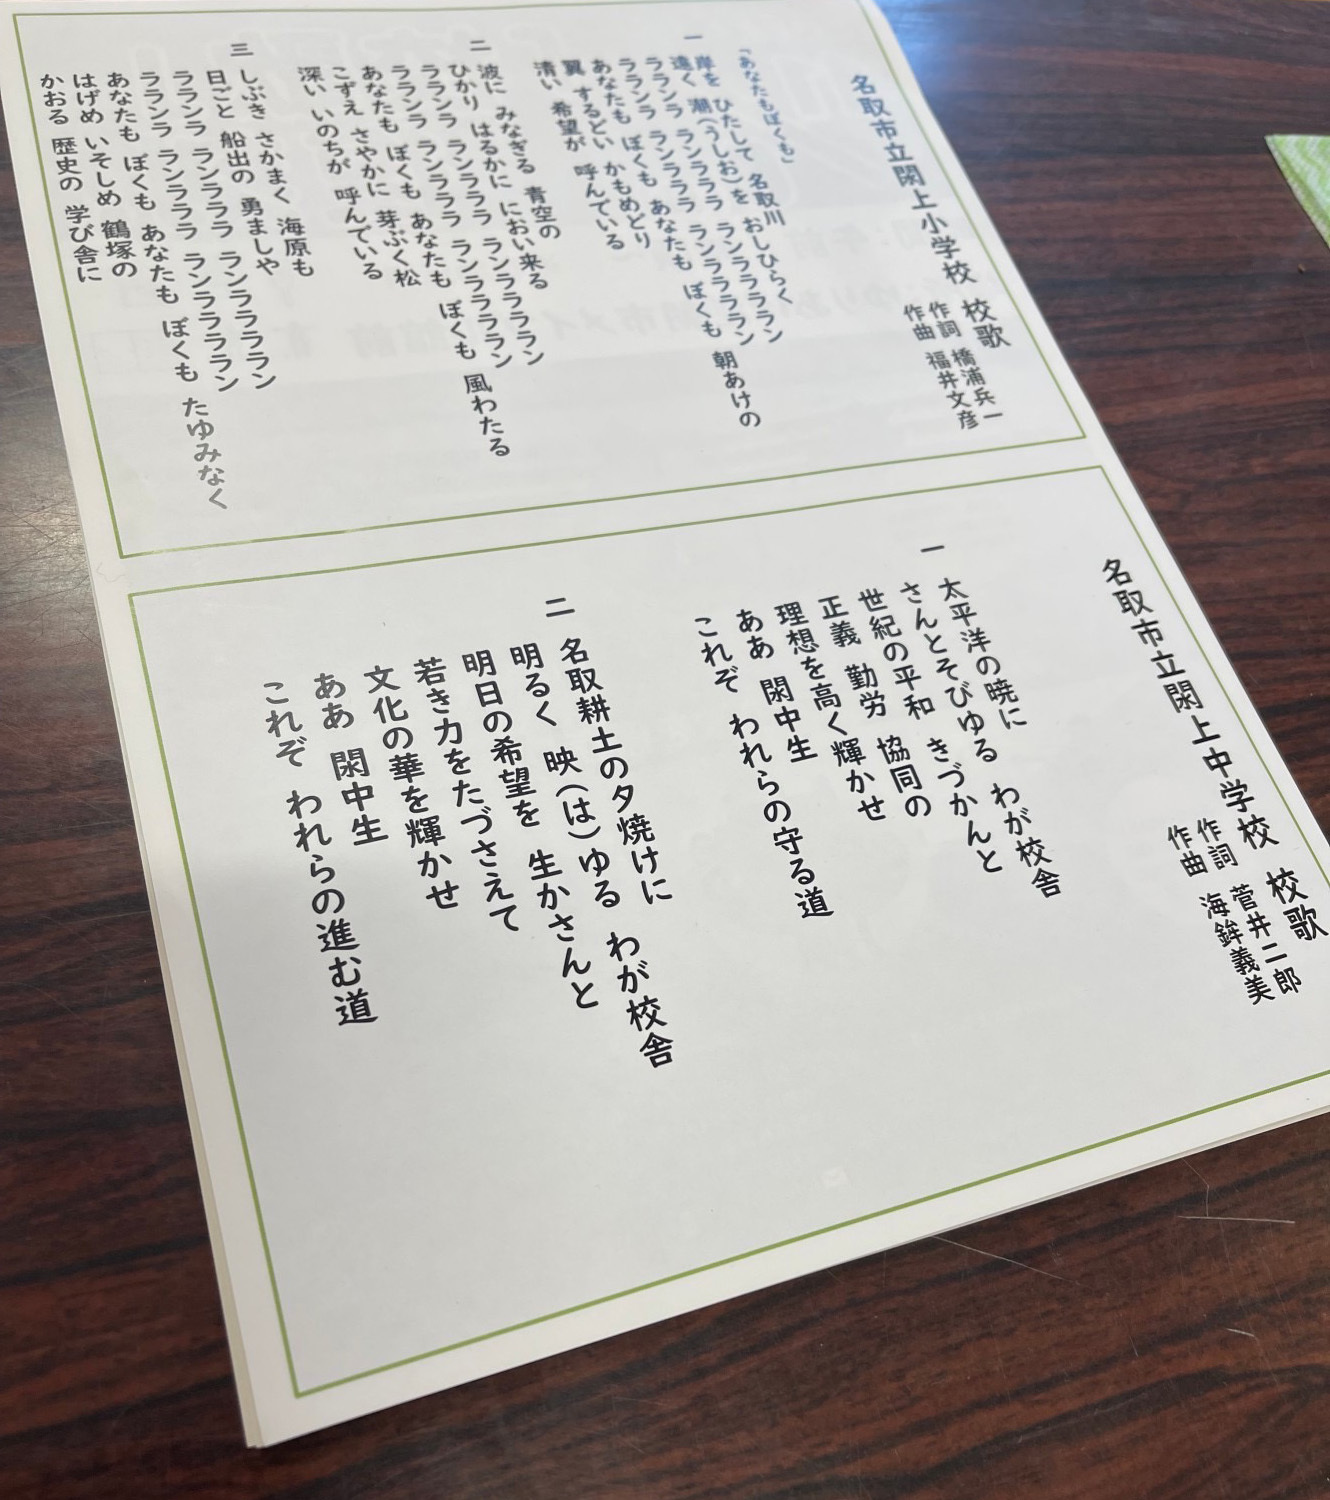 名取市立閖上小学校 校歌
作詞 橋浦兵一
作曲 福井文彦
「あなたもぼくも」
一 岸を ひたして 名取川
遠く 潮(うしお)を おしひらく
ラランラ ランラララ ランララララン
ラランラ ランラララ ランララララン
あなたも ぼくも あなたも ぼくも 朝あけの
翼 するどい かもめどり
清い 希望が 呼んでいる
二 波に みなぎる 青空の
ひかり はるかに におい来る
ラランラ ランラララ ランララララン
ラランラ ランラララ ランララララン
あなたも ぼくも あなたも ぼくも 風わたる
こずえ さやかに 芽ぶく松
深い いのちが 呼んでいる
三 しぶき さかまく 海原も
日ごと 船出の 勇ましや
ラランラ ランラララ ランララララン
ラランラ ランラララ ランララララン
あなたも ぼくも あなたも ぼくも たゆみなく
はげめ いそしめ 鶴塚の
かおる 歴史の 学び舎に
名取市立閖上中学校 校歌
作詞 菅井二郎
作曲 海鉾義美
一 太平洋の暁に
さんとそびゆる わが校舎
世紀の平和 きづかんと
正義 勤労 協同の
理想を高く輝かせ
ああ 閖中生
これぞ われらの守る道
二 名取耕土の夕焼けに
明るく 映(は)ゆる わが校舎
明日の希望を 生かさんと
若き力をたづさえて
文化の華を輝かせ
ああ 閖中生
これぞ われらの進む道